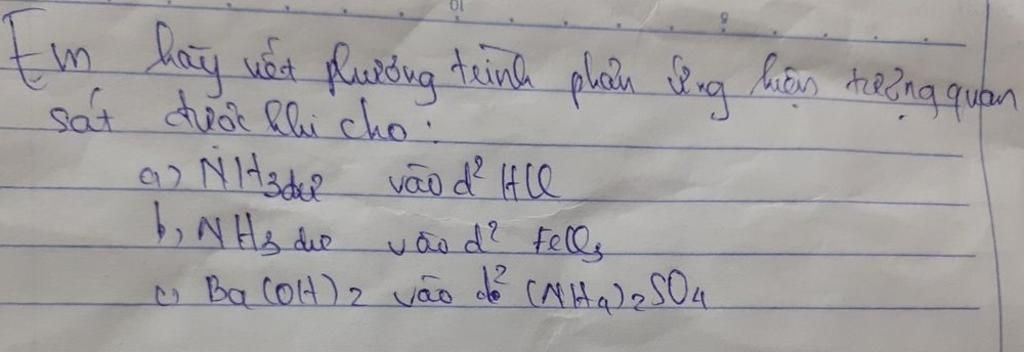 Em hãy viết phương trình phản ứng hiện tượng quan
sát được khi cho:
a) NH3 dư vào d² HCl
b, NH3 dư vào d² FeCl3
c) Ba(OH)2 vào d² (NH4)2SO4